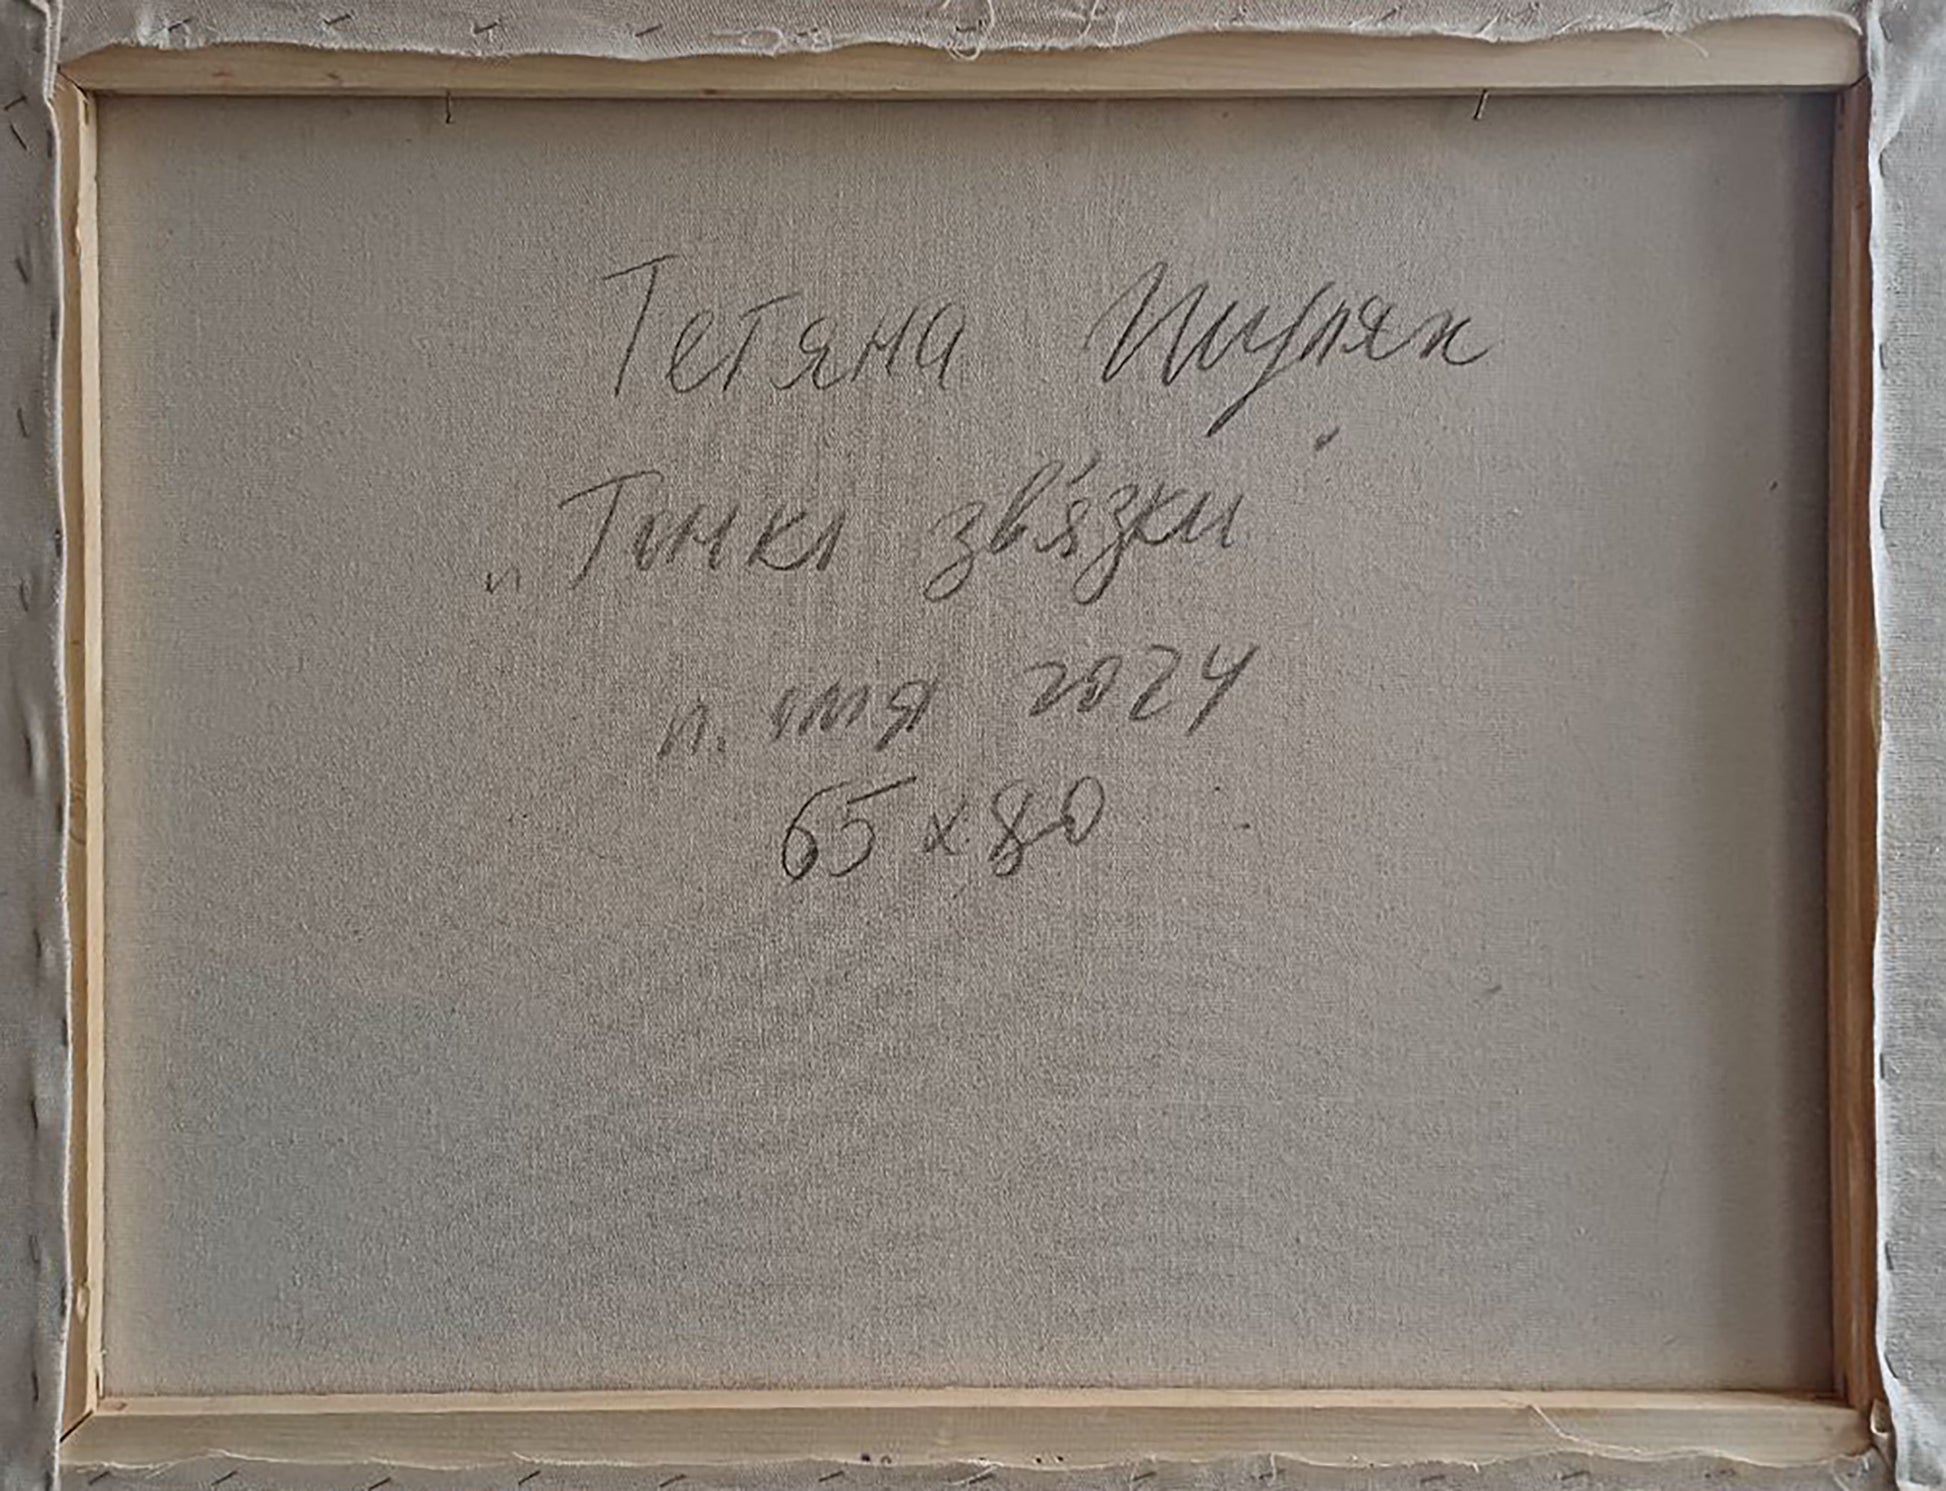 Тетяна Шуляк
„Тонкі зв'язки"
п. олія 2024
65 х 80